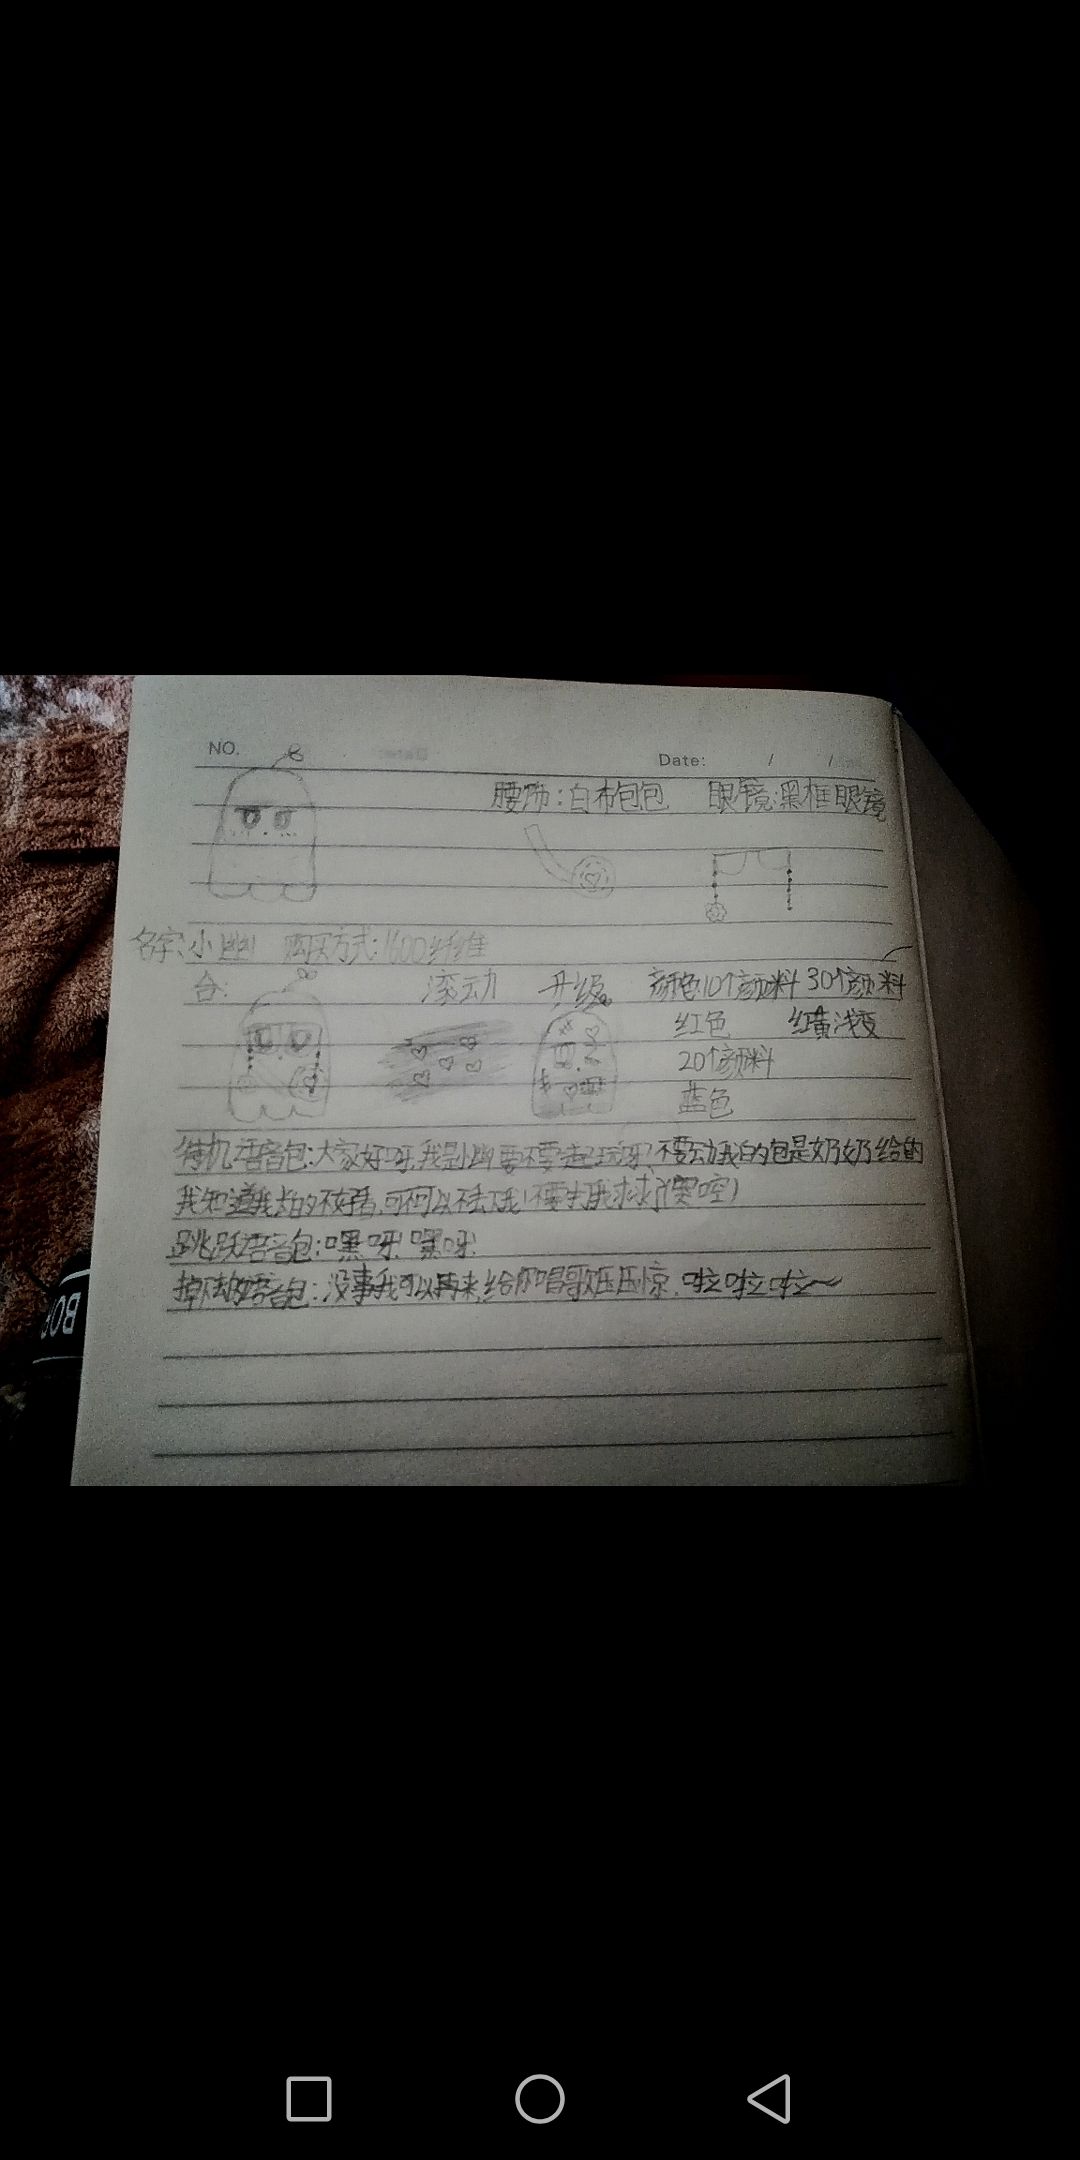 NO.
Date: / /
腰饰:白布包包 眼镜:黑框眼镜
名字:小幽 购买方式:1600纤维
合: 滚动 升级 颜色10个颜料 30个颜料
红色 红黄浅变
20个颜料
蓝色
待机语音包:大家好呀,我是小幽要不要一起玩呀!不要动我的包是奶奶给的
我知道我的不好看,可不可以不要
跳跃语音包:嘿呀!嘿呀!
掉下去的语音包:没事我可以再来,给你唱歌压压惊,啦啦啦~
BO